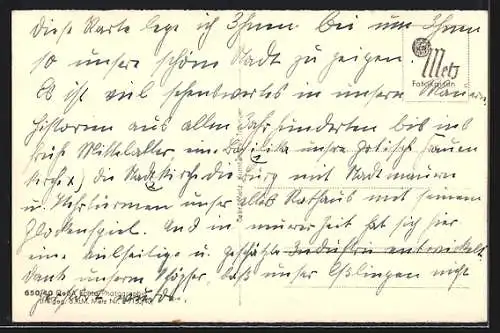 Diese Karte lege ich Ihnen bei um Ihnen
so unsere schöne Stadt zu zeigen.
Es ist viel sehenswertes in unseren Mauern,
Historien aus allen Jahrhunderten bis ins
frühe Mittelalter, eine Basilika unsere gotische Frauen
kirche) die Stadtkirche die Burg mit Stadtmauern
u. Wehrtürmen unser altes Rathaus mit seinem
Glockenspiel. Und in neuerer Zeit hat sich hier
eine vielseitige u. geschätzte Industrie entwickelt.
Dank unserm daß unser Eßlingen nicht
wurde.
Metz
650/40